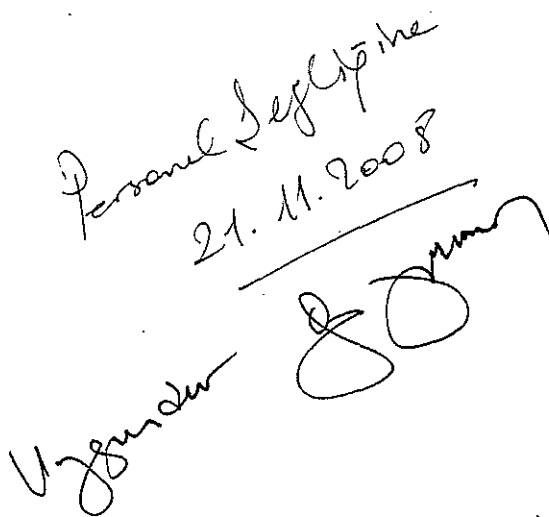 Personel Şefliğine
21.11.2008
Uygundur